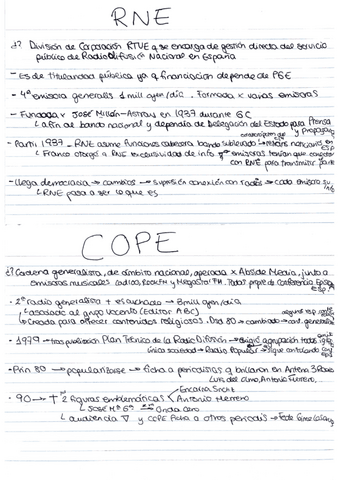 RNE
d? División de Corporación RTVE q se encarga de gestión directa del servicio
público de Radio Difusión Nacional en España
- Es de titularidad pública ya q financiación depende de PGE
- 4º emisora generalis 1 mill oyen/día. Formada x varias emisoras
- Fundada x JOSÉ Millán-Astray en 1937 durante GC
↳ afin al bando nacional y dependía de Delegación del Estado para Prensa
y Propag
- Parti 1937 - RNE asume funciones cabecera bando sublevado
↳ Franco otorgó a RNE exclusividad de info emisoras tenían que
con RNE para transmitir parte
- Llega democracia → cambios → supresión conexión con radios → cada emisora su
↳ RNE pasa a ser lo que es
COPE
d? Cadena generalista, de ámbito nacional, operada x Ábside Media, junto a
emisoras musicales Cadena 100, Rock FM y Megastar FM.
• 2º radio generalista + escuchada → 3 mill oyen/día
↳ asociado al grupo Vocento (Editor ABC)
↳ Creada para ofrecer contenidos religiosos. Dsd 80 → cambiado → cont. generalis
• 1979 → tras publicación Plan Técnico de la Radio Difusión → agrupación todas
única sociedad → Radio Popular → sigue
- Prin 80 → popularizarse → ficha a periodistas q brillaron en Antena 3 Radio
Luis del Olmo, Antonio Herrero,
• 90 → † 2 figuras emblemáticas Encarna Snchz
Antonio Herrero
↳ JOSE Mª Gª → Onda Cero
↳ audiencia ∇ y COPE ficha a otros periodis →